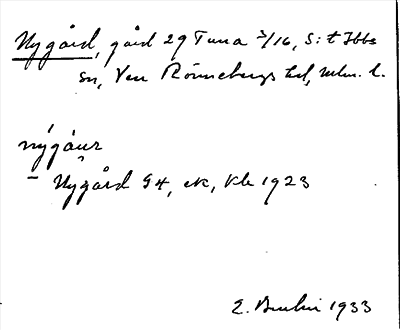 Nygård, gård 29 Tuna 3/16, S:t Ibbs
sn, Ven Rönnebergs hd, Mlm. l.
nýgåur
— Nygård G4, ek, Kb 1923
E. 1933